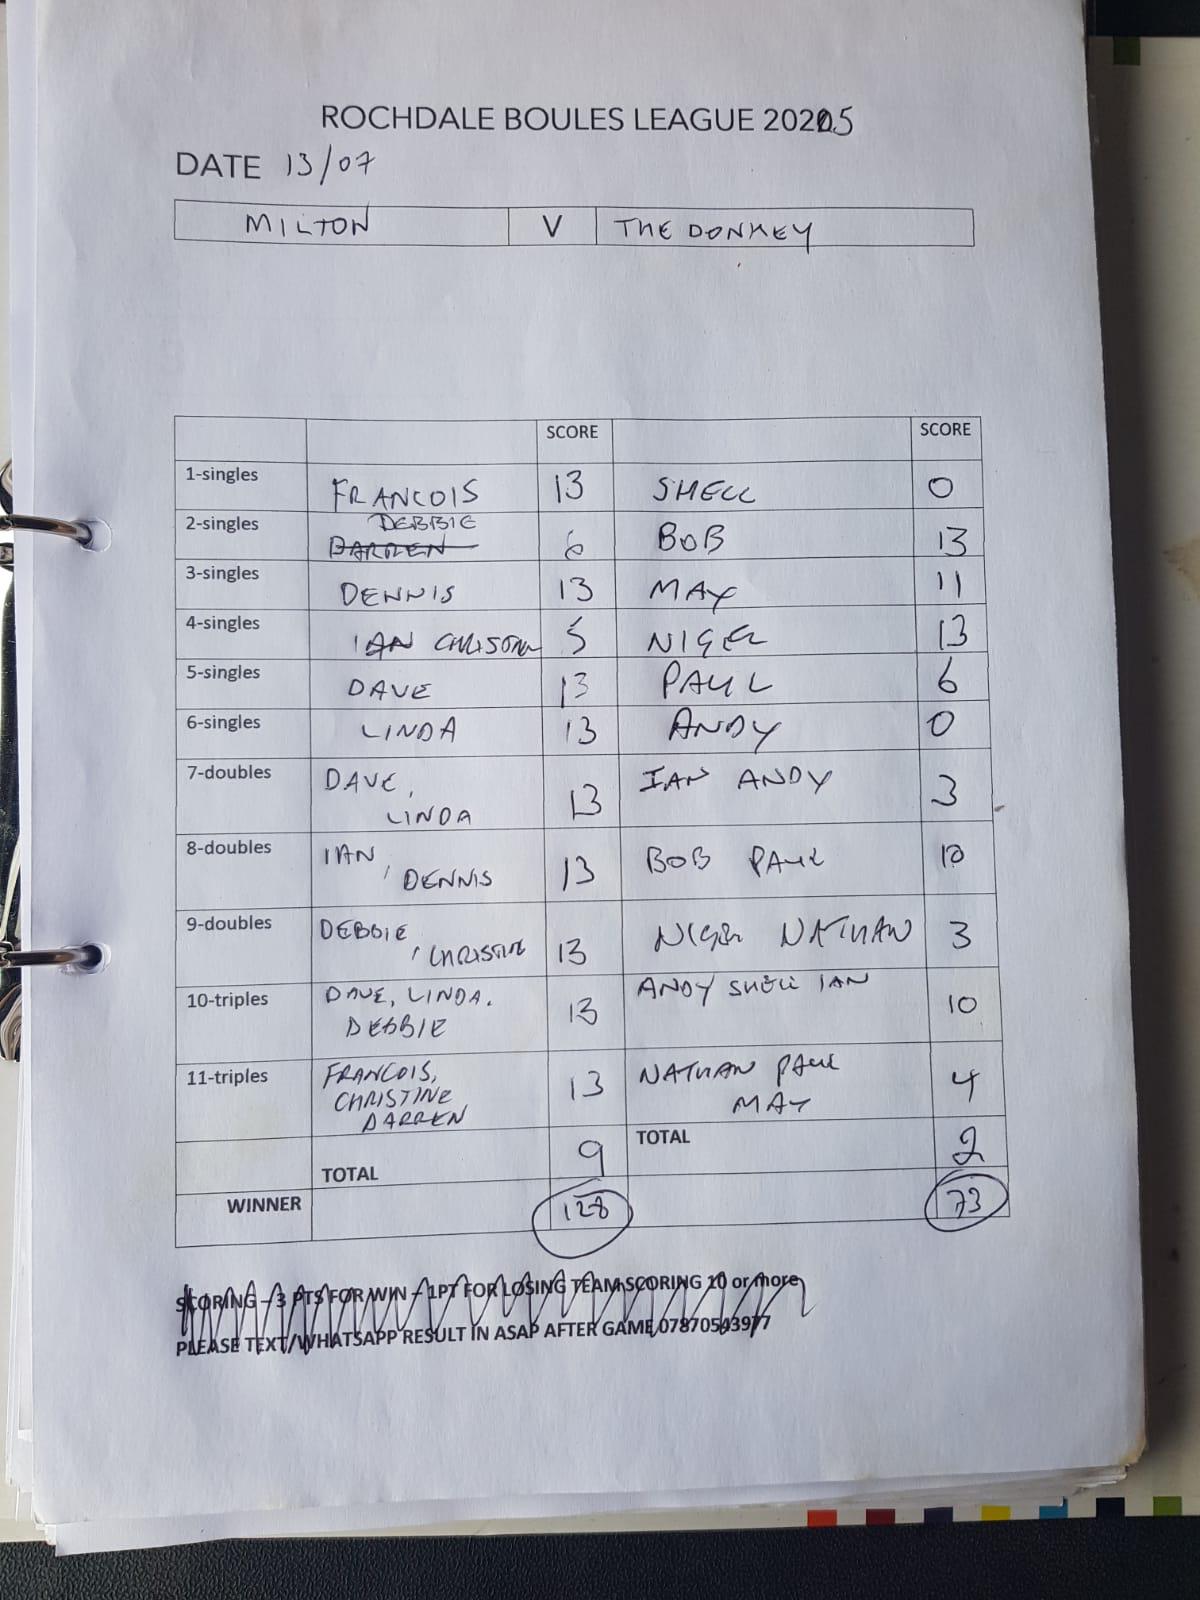 ROCHDALE BOULES LEAGUE 2025
DATE 13/07
MILTON V THE DONKEY
SCORE SCORE
1-singles FRANCOIS 13 SHELL 0
2-singles DEBBIE 6 BOB 13
DARREN
3-singles DENNIS 13 MAY 11
4-singles IAN CHRISTINE 5 NIGEL 13
5-singles DAVE 13 PAUL 6
6-singles LINDA 13 ANDY 0
7-doubles DAVE, 13 IAN ANDY 3
LINDA
8-doubles IAN, 13 BOB PAUL 10
DENNIS
9-doubles DEBBIE, 13 NIGEL NATHAN 3
CHRISTINE
10-triples DAVE, LINDA. 13 ANDY SHELL IAN 10
DEBBIE
11-triples FRANCOIS, 13 NATHAN PAUL 4
CHRISTINE MAY
DARREN
TOTAL 9 TOTAL 2
WINNER 128 73
SCORING – 3 PTS FOR WIN – 1PT FOR LOSING TEAM SCORING 10 or more
PLEASE TEXT/WHATSAPP RESULT IN ASAP AFTER GAME 07870543977